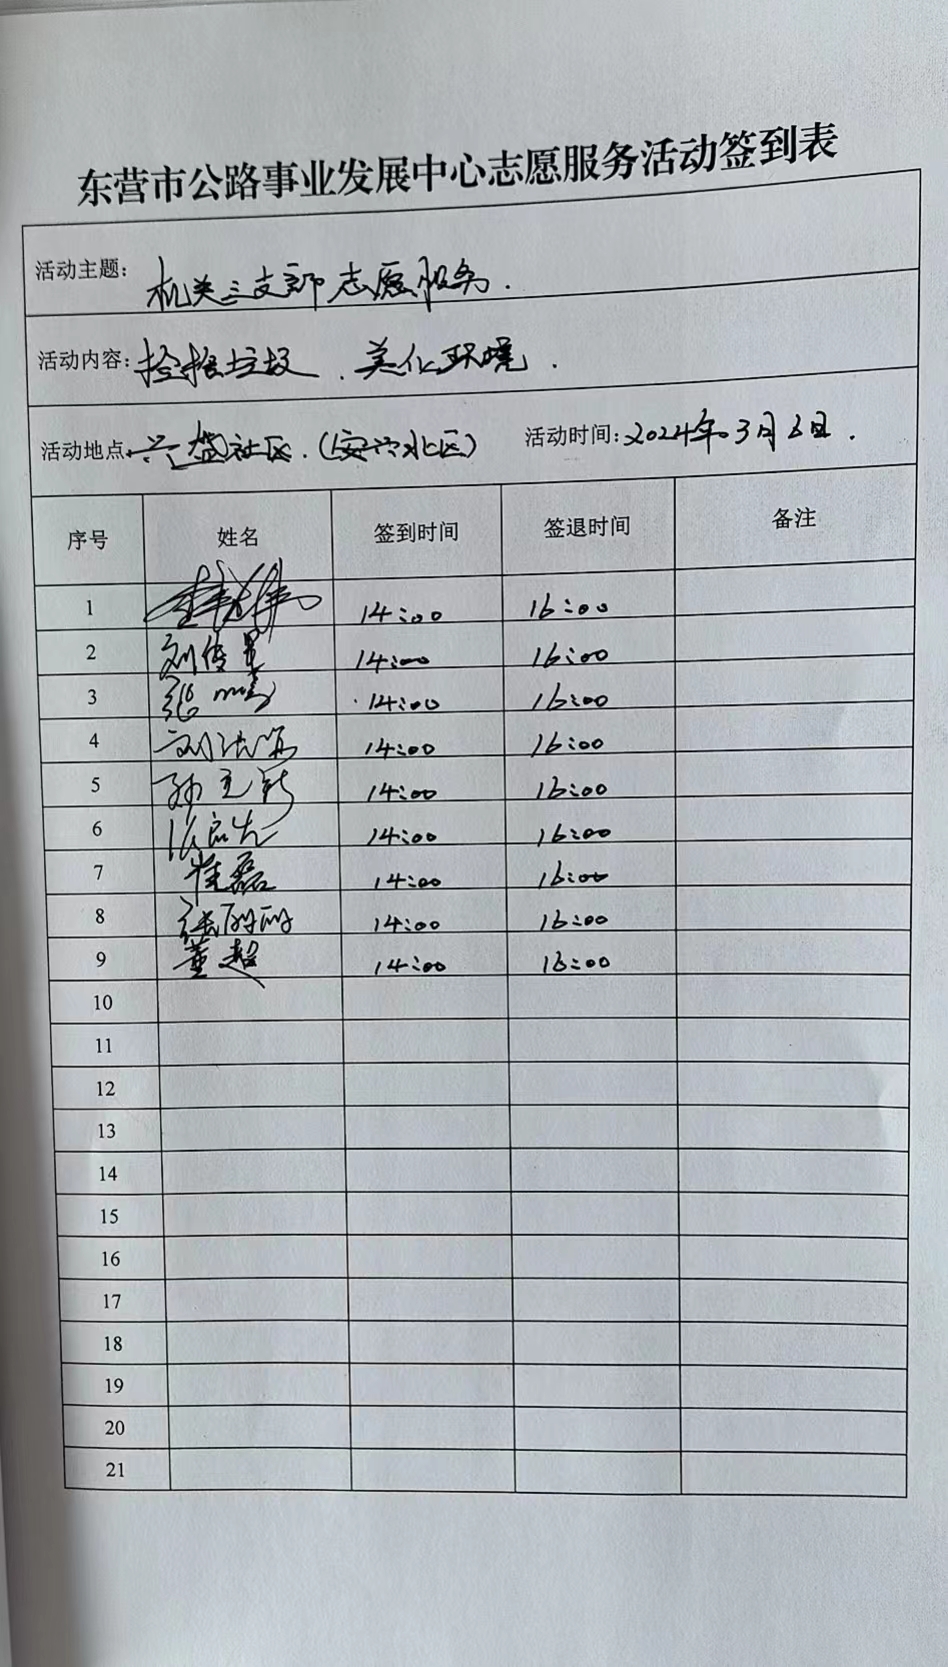 东营市公路事业发展中心志愿服务活动签到表
活动主题: 机关三支部志愿服务.
活动内容: 捡拾垃圾、美化环境.
活动地点 兴盛社区.(安兴北区) 活动时间: 2024年3月6日.
序号 姓名 签到时间 签退时间 备注
1 14:00 16:00
2 刘传 14:00 16:00
3 张 14:00 16:00
4 刘 14:00 16:00
5 孙 14:00 16:00
6 14:00 16:00
7 崔磊 14:00 16:00
8 张丽丽 14:00 16:00
9 董超 14:00 16:00
10
11
12
13
14
15
16
17
18
19
20
21